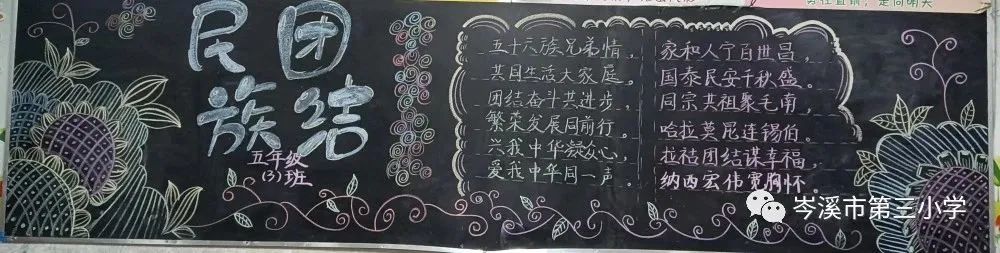 民族
团结
五年级
(3)班
五十六族兄弟情，
共同生活大家庭。
团结奋斗共进步，
繁荣发展同前行。
兴我中华凝众心，
爱我中华同一声。
家和人宁百世昌，
国泰民安千秋盛。
同宗共祖聚毛南，
哈拉莫昆连锡伯。
拉祜团结谋幸福，
纳西宏伟宽胸怀。
岑溪市第三小学